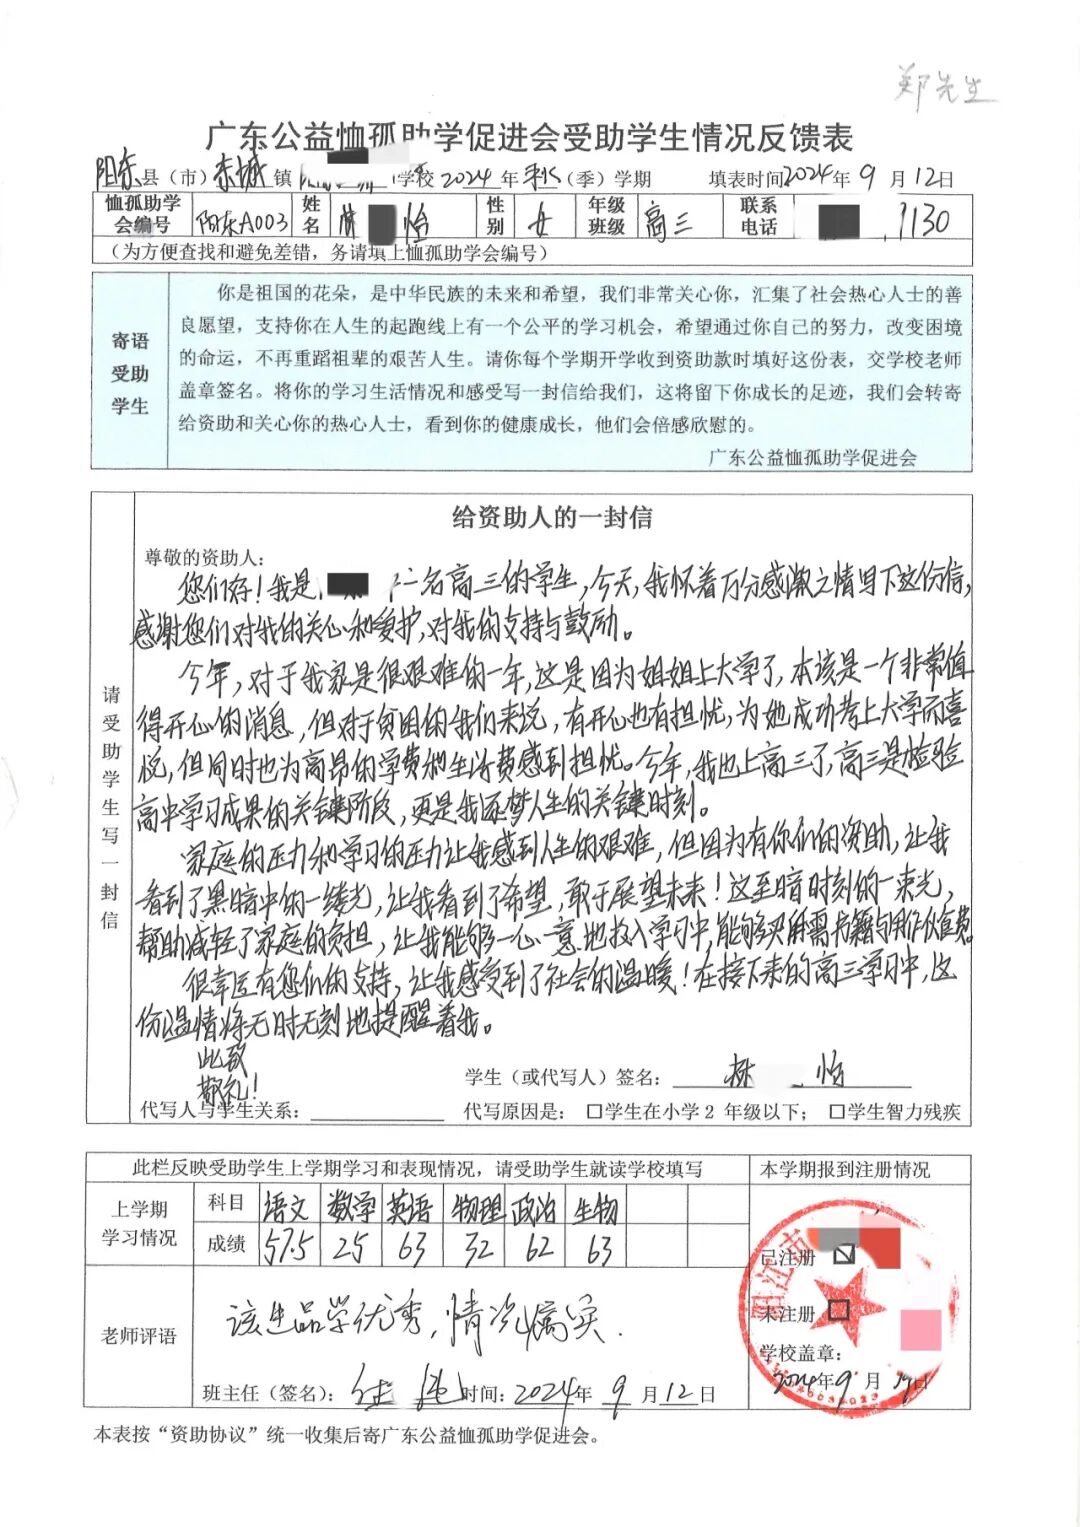 郑先生
广东公益恤孤助学促进会受助学生情况反馈表
阳东县（市）东城镇 学校2024年秋（季）学期 填表时间2024年9月12日
恤孤助学会编号 阳东A003 姓名 林 怡 性别 女 年级班级 高三 联系电话 1130
（为方便查找和避免差错，务请填上恤孤助学会编号）
寄语受助学生
你是祖国的花朵，是中华民族的未来和希望，我们非常关心你，汇集了社会热心人士的善
良愿望，支持你在人生的起跑线上有一个公平的学习机会，希望通过你自己的努力，改变困境
的命运，不再重蹈祖辈的艰苦人生。请你每个学期开学收到资助款时填好这份表，交学校老师
盖章签名。将你的学习生活情况和感受写一封信给我们，这将留下你成长的足迹，我们会转寄
给资助和关心你的热心人士，看到你的健康成长，他们会倍感欣慰的。
广东公益恤孤助学促进会
请受助学生写一封信
给资助人的一封信
尊敬的资助人：
您们好！我是 一名高三的学生，今天，我怀着万分感激之情写下这份信，
感谢您们对我的关心和爱护，对我的支持与鼓励。
今年，对于我家是很艰难的一年，这是因为姐姐上大学了，本该是一个非常值
得开心的消息，但对于贫困的我们来说，有开心也有担忧，为她成功考上大学而喜
悦，但同时也为高昂的学费和生活费感到担忧。今年，我也上高三了，高三是检验
高中学习成果的关键阶段，更是我逐梦人生的关键时刻。
家庭的压力和学习的压力让我感到人生的艰难，但因为有你们的资助，让我
看到了黑暗中的一缕光，让我看到了希望，敢于展望未来！这至暗时刻的一束光，
帮助减轻了家庭的负担，让我能够一心一意地投入学习中，能够买所需书籍与用作伙食费。
很幸运有您们的支持，让我感受到了社会的温暖！在接下来的高三学习中，这
份温情将无时无刻地提醒着我。
此致
敬礼！
学生（或代写人）签名：林 怡
代写人与学生关系： 代写原因是：□学生在小学2 年级以下；□学生智力残疾
此栏反映受助学生上学期学习和表现情况，请受助学生就读学校填写 本学期报到注册情况
上学期学习情况 科目 语文 数学 英语 物理 政治 生物
成绩 57.5 25 63 32 62 63
已注册 ☑
未注册 □
老师评语 该生品学优秀，情况属实.
学校盖章：
2024年9月 日
班主任（签名）： 时间：2024年9月12日
阳江市
本表按“资助协议”统一收集后寄广东公益恤孤助学促进会。